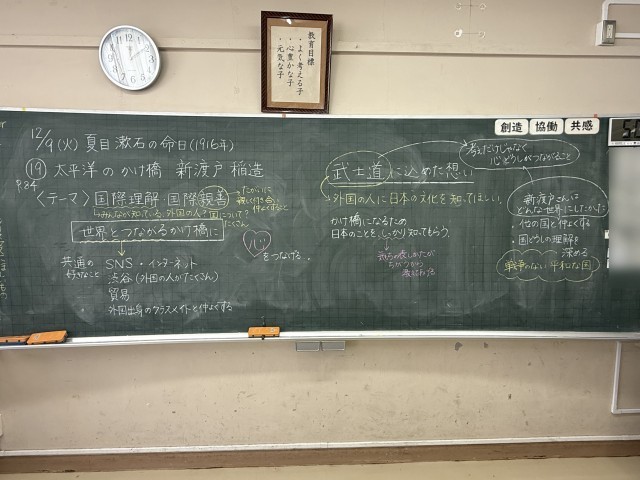 教育目標
・よく考える子
・心豊かな子
・元気な子
創造 協働 共感
12/9(火) 夏目漱石の命日(1916年)
⑲ 太平洋のかけ橋 新渡戸稲造
P.84
〈テーマ〉国際理解・国際親善
世界とつながるかけ橋に
共通の
好きなこと
SNS・インターネット
渋谷(外国の人がたくさん)
貿易
外国出身のクラスメイトと仲よくする
をつなげる。
武士道に込めた想い
外国の人に日本の文化を知ってほしい。
かけ橋になるため
日本のことを、しっかり知ってもらう。
考えだけじゃなく
心どうしがつながること
新渡戸さんは
どんな世界にしたかった
・他の国と仲よくする
・国どうしの理解を
深める
戦争のない平和な国